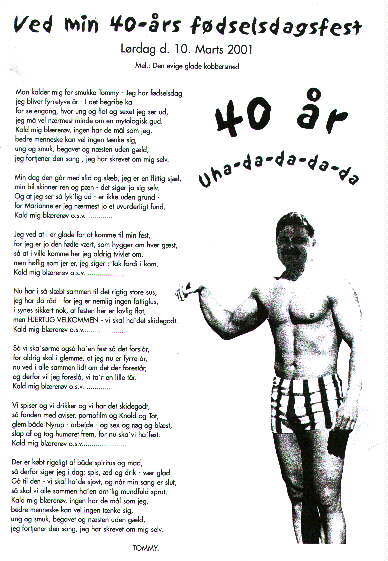 Ved min 40-års fødselsdagsfest
Lørdag d. 10. Marts 2001
Mel.: Den evige glade kobbersmed
40 år
Uha-da-da-da-da
Man kalder mig for smukke Tommy - jeg har fødselsdag
jeg bliver fyrretyve år - I det begribe ka
for se engang, hvor ung og flot og sexet jeg ser ud,
jeg må vel nærmest minde om en mytologisk gud.
Kald mig blærerøv, ingen har de mål som jeg,
bedre menneske kan vel ingen tænke sig,
ung og smuk, begavet og næsten uden gæld,
jeg fortjener den sang , jeg har skrevet om mig selv.
Min dag den går med slid og slæb, jeg er en flittig sjæl,
min bil skinner ren og pæn - det siger jo sig selv.
Og at jeg ser så lykklig ud - er ikke uden grund -
for Marianne er jeg nærmest jo et uvurderligt fund.
Kald mig blærerøv o.s.v. ..............
Jeg ved at - er glade for at komme til min fest,
for jeg er jo den fødte vært, som hygger om hver gæst,
så at i ville komme her jeg aldrig tvivlet om.
men høflig som jer er, jeg siger : Tak fordi i kom.
Kald mig blærerøv o.s.v. ..............
Nu har i så slæbt sammen til det rigtig store sus,
jeg har da råd for jeg er nemlig ingen fattiglus,
i synes sikkert nok, at festen her er lovlig flot,
men HJERTLIG VELKOMMEN - vi skal ha'det skidegodt.
Kald mig blærerøv o.s.v...................
Så vi ska'sørme også ha'en fest så det forslår,
for aldrig skal i glemme, at jeg nu er fyrre år,
nu ved i alle sammen lidt om det der forestår,
og derfor vil jeg foreslå, vi ta'r en lille tår.
Kald mig blærerøv o.s.v. ..............
Vi spiser og vi drikker og vi har det skidegodt,
så fanden med aviser, pornofilm og Knald og Tot,
glem både Nyrup - arbejde - og sex og røg og blæst,
slap af og tag humøret frem, for nu ska'vi ha'fest.
Kald mig blærerøv o.s.v...................
Der er købt rigeligt af både spiritus og mad,
så derfor siger jeg i dag: spis, æd og drik - vær glad
Gå til den - vi skal ha'de sjovt, og når min sang er slut,
så skal vi alle sammen ha'en om'lig mundfuld sprut.
Kald mig blærerøv, ingen har de mål som jeg,
bedre menneske kan vel ingen tænke sig,
ung og smuk, begavet og næsten uden gæld,
jeg fortjener den sang, jeg har skrevet om mig selv.
TOMMY.